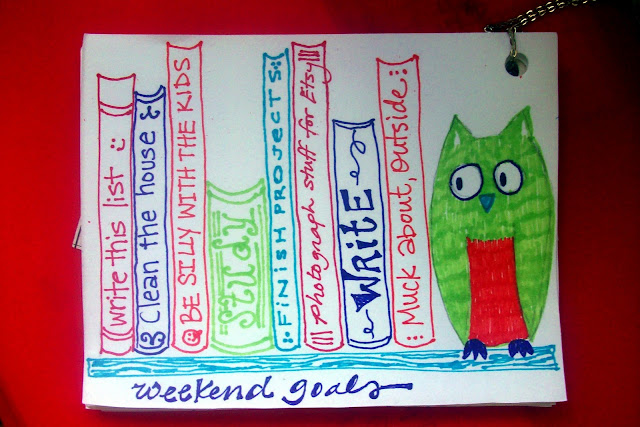 write this list
Clean the house
BE SILLY WITH THE KIDS
STUDY
FINISH PROJECTS
Photograph stuff for Etsy
WRITE
Muck about, outside
weekend goals